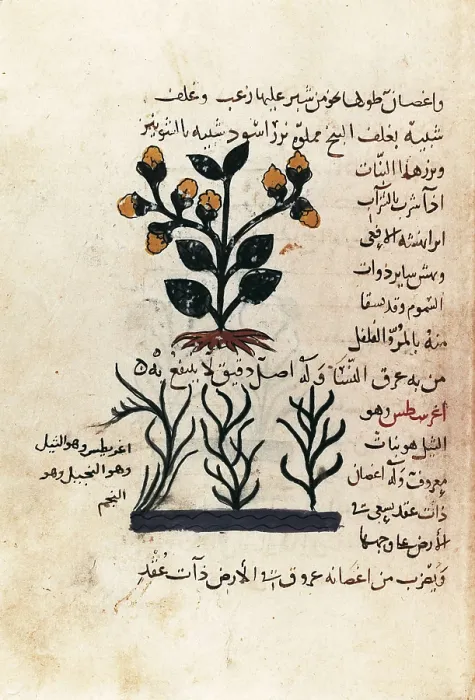 واغصان طولها نحو من شبر عليها زغب وغلف
شبيه بغلف البنج مملوه بزر اسود شبيه بالشونيز
وبزر هذا النبات
اذا شرب بالشراب
ابرا نهشه الافعى
ونهش ساير ذوات
السموم وقد يسقا
منه بالمر والفلفل
من به عرق النسا وله اصل دقيق لا ينتفع به
اغرسطس وهو
الثيل هو نبات
معروف وله اغصان
ذات عقد يسعى في
الارض على وجهها
ويضرب من اغصانه عروق في الارض ذات عقد
اغريطس وهو الثيل
وهو النجيل وهو
النجم